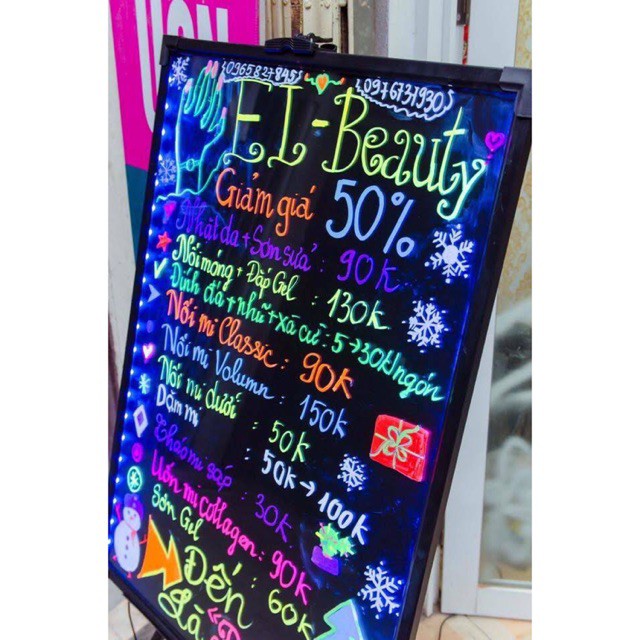 0965827845
0976737930
EI-Beauty
Giảm giá 50%
Nhặt da + Sơn sửa : 90k
Nối móng + Đắp Gel : 130k
Đính đá + nhũ + xà cừ : 5→30k/ngón
Nối mi Classic : 90k
Nối mi Volumn : 150k
Nối mi dưới : 50k
Dặm mi : 50k→100k
Tháo mi sáp : 30k
Uốn mi collagen : 90k
Sơn Gel : 60k
Đến